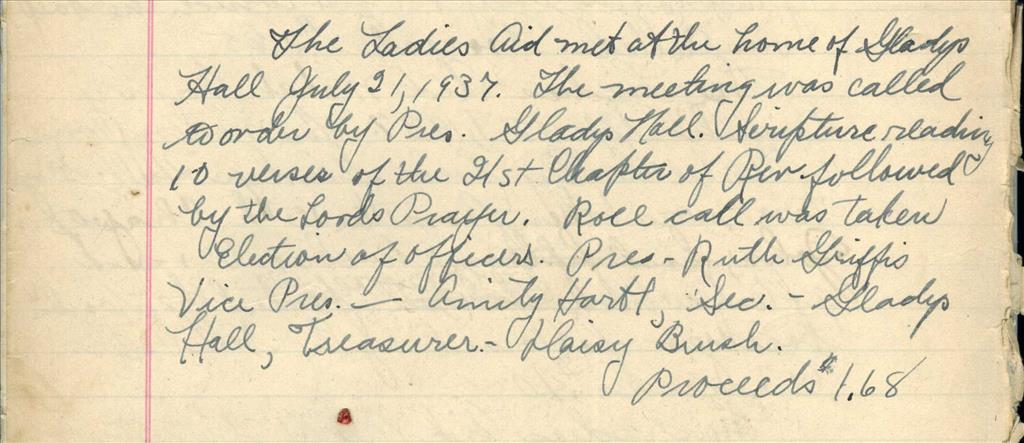 The Ladies Aid met at the home of Gladys
Hall July 21, 1937. The meeting was called
to order by Pres. Gladys Hall. Scripture reading
10 verses of the 21st Chapter of Rev followed
by the Lords Prayer. Roll call was taken
Election of officers. Pres - Ruth Griffis
Vice Pres. — Amity Hartl, Sec. - Gladys
Hall, Treasurer - Daisy Brush.
Proceeds $1.68